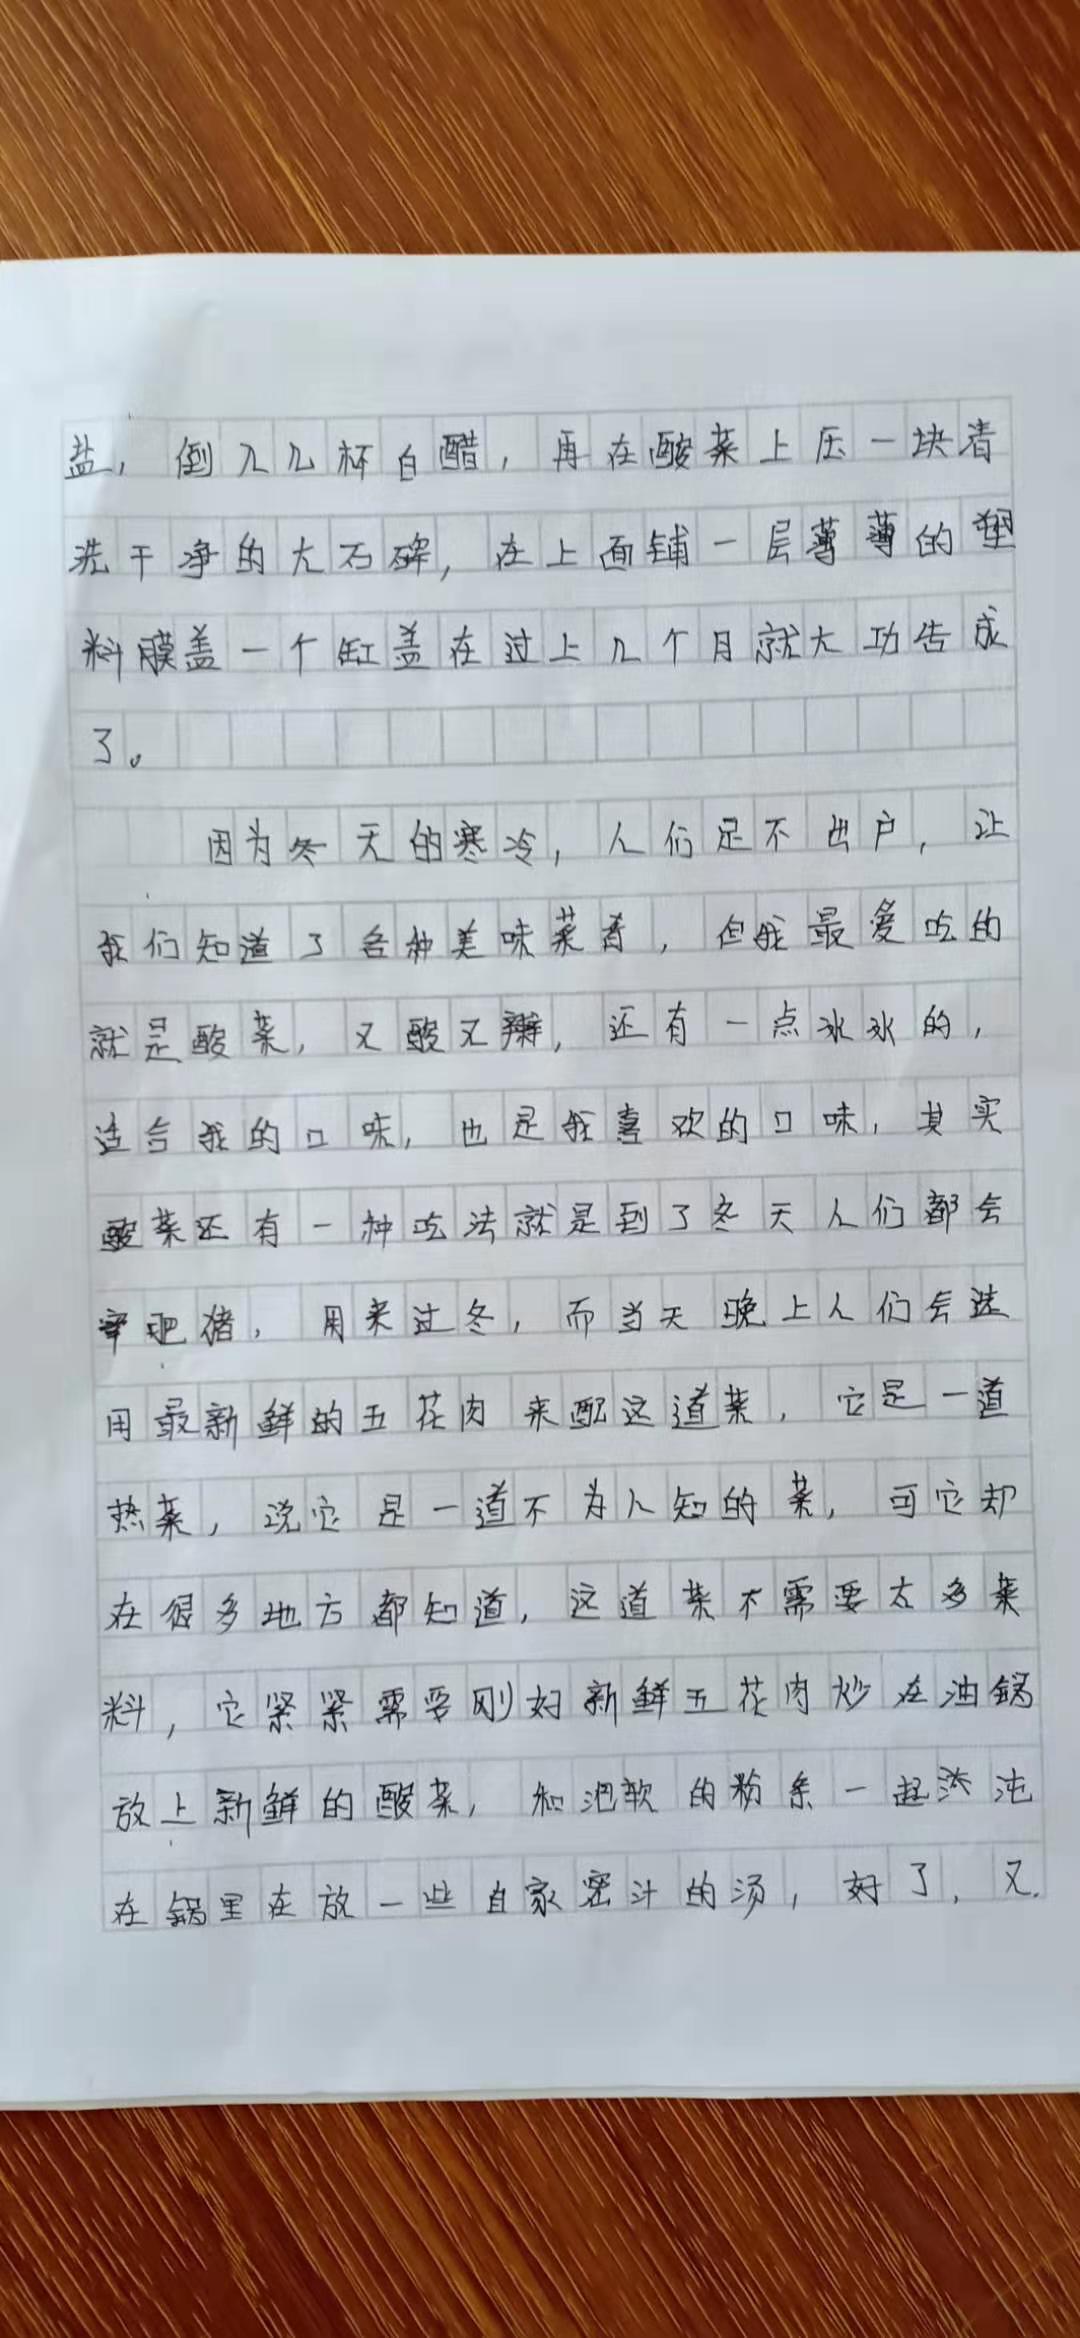 盐，倒入几杯白醋，再在酸菜上压一块清
洗干净的大石碑，在上面铺一层薄薄的塑
料膜盖一个缸盖在过上几个月就大功告成
了。
因为冬天的寒冷，人们足不出户，让
我们知道了各种美味菜肴，但我最爱吃的
就是酸菜，又酸又辣，还有一点冰冰的，
适合我的口味，也是我喜欢的口味，其实
酸菜还有一种吃法就是到了冬天人们都会
宰肥猪，用来过冬，而当天晚上人们会选
用最新鲜的五花肉来配这道菜，它是一道
热菜，说它是一道不为人知的菜，可它却
在很多地方都知道，这道菜不需要太多菜
料，它紧紧需要刚好新鲜五花肉炒在油锅
放上新鲜的酸菜，和泡软的粉条一起炖
在锅里在放一些自家密汁的汤，好了，又